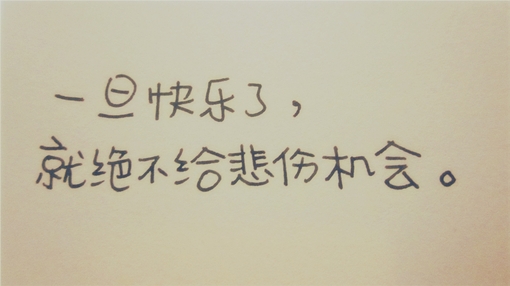 一旦快乐了，
就绝不给悲伤机会。